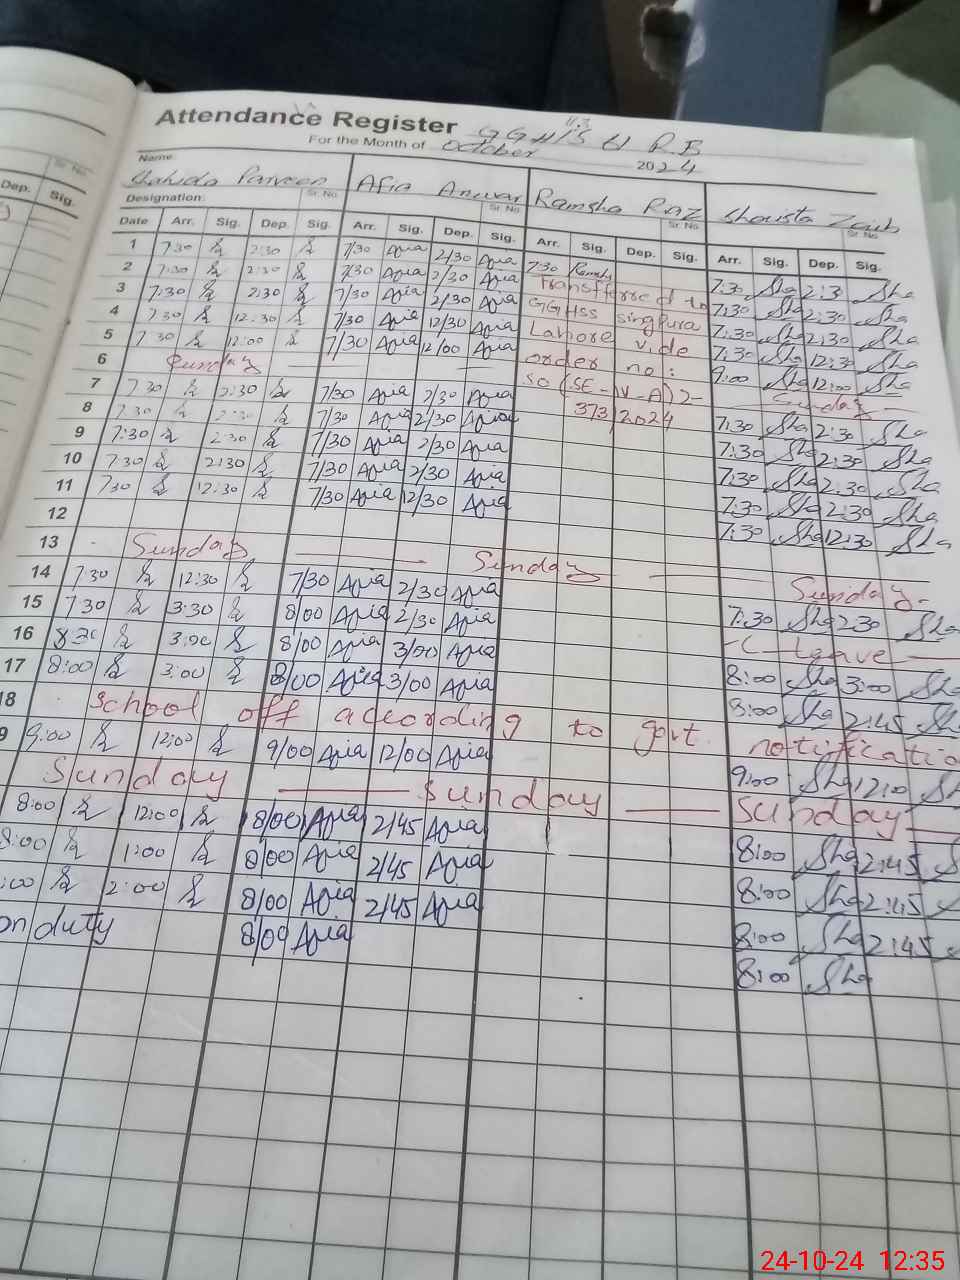 Attendance Register GGHSS 61 R.B
For the Month of October 2024
Name: Shahida Parveen Sr. No. Afia Anwar Sr. No. Ramsha Riaz Sr. No. Shaista Zaib Sr. No.
Dep. Sig.
Designation:
Date Arr. Sig. Dep. Sig. Arr. Sig. Dep. Sig. Arr. Sig. Dep. Sig. Arr. Sig. Dep. Sig.
1 7:30 2:30 7/30 Afia 2/30 Afia 7:30 7:30 Sha 2:30 Sha
2 7:30 2:30 7/30 Afia 2/30 Afia Transferred to 7:30 Sha 2:30 Sha
3 7:30 2:30 7/30 Afia 2/30 Afia GGHSS singpura 7:30 Sha 2:30 Sha
4 7:30 12:30 7/30 Afia 12/30 Afia Lahore vide 7:30 Sha 12:30 Sha
5 7:30 12:00 7/30 Afia 12/00 Afia order no: 9:00 Sha 12:00 Sha
6 Sunday SO (SE-IV-A) 2- Sunday
7 7:30 2:30 7/30 Afia 2/30 Afia 373/2024 7:30 Sha 2:30 Sha
8 7:30 2:30 7/30 Afia 2/30 Afia 7:30 Sha 2:30 Sha
9 7:30 2:30 7/30 Afia 2/30 Afia 7:30 Sha 2:30 Sha
10 7:30 2:30 7/30 Afia 2/30 Afia 7:30 Sha 2:30 Sha
11 7:30 12:30 7/30 Afia 12/30 Afia 7:30 Sha 12:30 Sha
12
13 Sunday Sunday Sunday
14 7:30 12:30 7/30 Afia 2/30 Afia 7:30 Sha 2:30 Sha
15 7:30 3:30 8/00 Afia 2/30 Afia C-leave
16 8:30 3:00 8/00 Afia 3/00 Afia 8:00 Sha 3:00 Sha
17 8:00 3:00 8/00 Afia 3/00 Afia 8:00 Sha 2:45 Sha
18 School off according to govt. notificatio
9 9:00 12:00 9/00 Afia 12/00 Afia 9:00 Sha 12:0
Sunday Sunday Sunday
8:00 12:00 8/00 Afia 2/45 Afia 8:00 Sha 2:45
8:00 1:00 8/00 Afia 2/45 Afia 8:00 Sha 2:45
:00 2:00 8/00 Afia 2/45 Afia 8:00 Sha 2:45
on duty 8/00 Afia 8:00 Sha
24-10-24 12:35